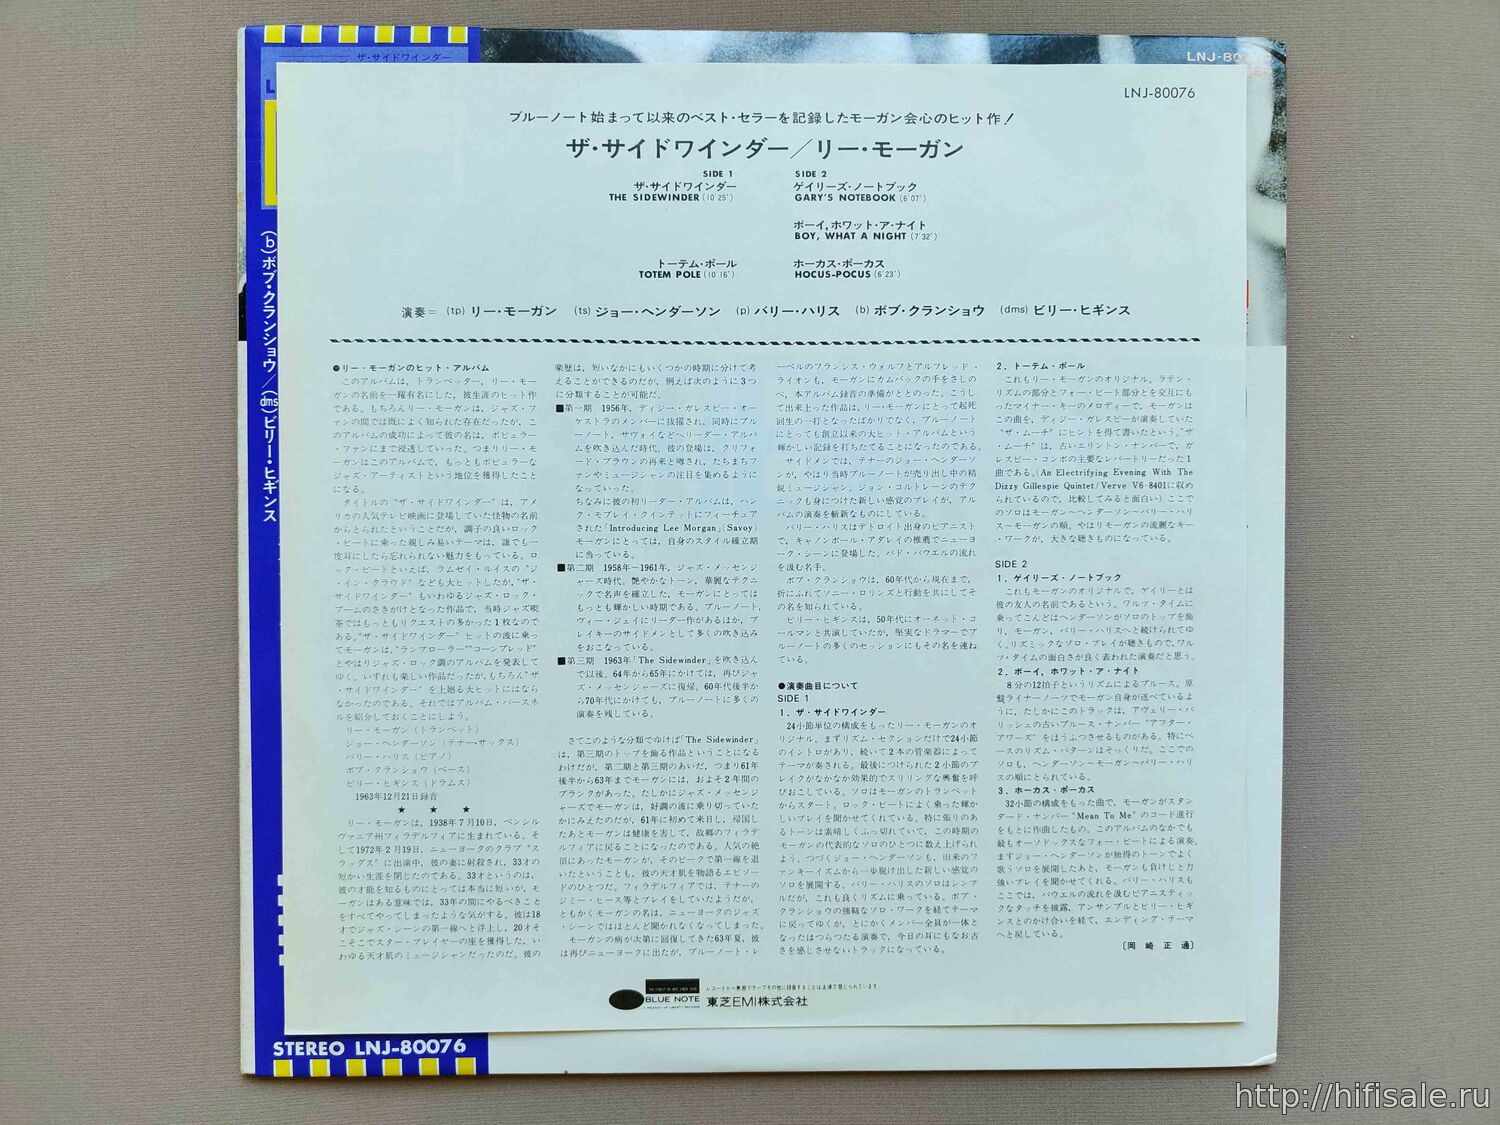 ザ・サイドワインダー
LNJ-80
(b)ボブ・クランショウ/(dms)ビリー・ヒギンス
LNJ-80076
ブルーノート始まって以来のベスト・セラーを記録したモーガン会心のヒット作！
ザ・サイドワインダー／リー・モーガン
SIDE 1
ザ・サイドワインダー
THE SIDEWINDER (10'25")
トーテム・ポール
TOTEM POLE (10'16")
SIDE 2
ゲイリーズ・ノートブック
GARY'S NOTEBOOK (6'07")
ボーイ, ホワット・ア・ナイト
BOY, WHAT A NIGHT (7'32")
ホーカス・ポーカス
HOCUS-POCUS (6'23")
演奏＝ (tp) リー・モーガン (ts) ジョー・ヘンダーソン (p) バリー・ハリス (b) ボブ・クランショウ (dms) ビリー・ヒギンス
●リー・モーガンのヒット・アルバム
このアルバムは，トランペッター，リー・モー
ガンの名前を一躍有名にした，彼生涯のヒット作
である。もちろんリー・モーガンは，ジャズ・フ
ァンの間では既によく知られた存在だったが，こ
のアルバムの成功によって彼の名は，ポピュラー
・ファンにまで浸透していった。つまりリー・モ
ーガンはこのアルバムで，もっともポピュラーな
ジャズ・アーティストという地位を獲得したこと
になる。
タイトルの“ザ・サイドワインダー”は，アメ
リカの人気テレビ映画に登場していた怪物の名前
からとられたということだが，調子の良いロック
・ビートに乗った親しみ易いテーマは，誰でも一
度耳にしたら忘れられない魅力をもっている。ロ
ック・ビートといえば，ラムゼイ・ルイスの“ジ
・イン・クラウド”なども大ヒットしたが，“ザ・
サイドワインダー”もいわゆるジャズ・ロック・
ブームのさきがけとなった作品で，当時ジャズ喫
茶ではもっともリクエストの多かった1枚なので
ある。“ザ・サイドワインダー”ヒットの波に乗っ
てモーガンは，“ランプローラー”“コーンブレッド”
とやはりジャズ・ロック調のアルバムを発表して
ゆく。いずれも楽しい作品だったが，もちろん“ザ
・サイドワインダー”を上廻る大ヒットにはなら
なかったのである。それではアルバム・パースネ
ルを紹介しておくことにしよう。
リー・モーガン (トランペット)
ジョー・ヘンダーソン (テナー・サックス)
バリー・ハリス (ピアノ)
ボブ・クランショウ (ベース)
ビリー・ヒギンス (ドラムス)
1963年12月21日録音
★ ★ ★
リー・モーガンは，1938年7月10日，ペンシル
ヴァニア州フィラデルフィアに生まれている。そ
して1972年2月19日，ニューヨークのクラブ“ス
ラッグス”に出演中，彼の妻に射殺され，33才の
短かい生涯を閉じたのである。33才というのは，
彼の才能を知るものにとっては本当に短いが，モ
ーガンはある意味では，33年の間にやるべきこと
をすべてやってしまったような気がする。彼は18
才でジャズ・シーンの第一線へと浮上し，20才そ
こそこでスター・プレイヤーの座を獲得した，い
わゆる天才肌のミュージシャンだったのだ。彼の
楽歴は，短いなかにもいくつかの時期に分けて考
えることができるのだが，例えば次のように3つ
に分類することが可能だ。
■第一期 1956年，ディジー・ガレスピー・オー
ケストラのメンバーに抜擢され，同時にブル
ーノート，サヴォイなどへリーダー・アルバ
ムを吹き込んだ時代。彼の登場は，クリフォ
ード・ブラウンの再来と噂され，たちまちフ
ァンやミュージシャンの注目を集めるように
なっていった。
ちなみに彼の初リーダー・アルバムは，ハン
ク・モブレイ・クインテットにフィーチュア
された「Introducing Lee Morgan」(Savoy)
モーガンにとっては，自身のスタイル確立期
に当っている。
■第二期 1958年〜1961年，ジャズ・メッセンジ
ャーズ時代。艶やかなトーン，華麗なテクニ
ックで名声を確立した，モーガンにとっては
もっとも輝かしい時期である。ブルーノート，
ヴィー・ジェイにリーダー作があるほか，ブ
レイキーのサイドメンとして多くの吹き込み
をおこなっている。
■第三期 1963年「The Sidewinder」を吹き込ん
で以後，64年から65年にかけては，再びジャ
ズ・メッセンジャーズに復帰。60年代後半か
ら70年代にかけても，ブルーノートに多くの
演奏を残している。
さてこのような分類でゆけば「The Sidewinder」
は，第三期のトップを飾る作品ということになる
わけだが，第二期と第三期のあいだ，つまり61年
後半から63年までモーガンには，およそ2年間の
ブランクがあった。たしかにジャズ・メッセンジ
ャーズでモーガンは，好調の波に乗り切っていた
かにみえたのだが，61年に初めて来日し，帰国し
たあとモーガンは健康を害して，故郷のフィラデ
ルフィアに戻ることになったのである。人気の絶
頂にあったモーガンが，そのピークで第一線を退
いたということも，彼の天才肌を物語るエピソー
ドのひとつだ。フィラデルフィアでは，テナーの
ジミー・ヒース等とプレイをしていたようだが，
ともかくモーガンの名は，ニューヨークのジャズ
・シーンではほとんど聞かれなくなってしまった。
モーガンの病が次第に回復してきた63年夏，彼
は再びニューヨークに出たが，ブルーノート・レ
ーベルのフランシス・ウォルフとアルフレッド・
ライオンも，モーガンにカムバックの手をさしの
べ，本アルバム録音の準備がととのった。こうし
て出来上った作品は，リー・モーガンにとって起死
回生の一打となったばかりでなく，ブルーノート
にとっても創立以来の大ヒット・アルバムという
輝かしい記録を打ちたてることになったのである。
サイドメンでは，テナーのジョー・ヘンダーソ
ンが，やはり当時ブルーノートが売り出し中の精
鋭ミュージシャン。ジョン・コルトレーンのテク
ニックも身につけた新しい感覚のプレイが，アル
バムの演奏を斬新なものにしている。
バリー・ハリスはデトロイト出身のピアニスト
で，キャノンボール・アダレイの推薦でニューヨ
ーク・シーンに登場した。バド・パウエルの流れ
を汲む名手。
ボブ・クランショウは，60年代から現在まで，
折にふれてソニー・ロリンズと行動を共にしてそ
の名を知られている。
ビリー・ヒギンスは，50年代にオーネット・コ
ールマンと共演していたが，堅実なドラマーでブ
ルーノートの多くのセッションにもその名を連ね
ている。
●演奏曲目について
SIDE 1
1．ザ・サイドワインダー
24小節単位の構成をもったリー・モーガンのオ
リジナル。まずリズム・セクションだけで24小節
のイントロがあり，続いて2本の管楽器によって
テーマが奏される。最後につけられた2小節のブ
レイクがなかなか効果的でスリリングな興奮を呼
びおこしている。ソロはモーガンのトランペット
からスタート。ロック・ビートによく乗った輝か
しいプレイを聞かせてくれる。特に張りのあ
るトーンは素晴しくふっ切れていて，この時期の
モーガンの代表的なソロのひとつに数え上げられ
よう。つづくジョー・ヘンダーソンも，旧来のフ
ァンキーイズムから一歩脱け出した新しい感覚の
ソロを展開する。バリー・ハリスのソロはシンプ
ルだが，これも良くリズムに乗っている。ボブ・
クランショウの強靱なソロ・ワークを経てテーマ
に戻ってゆくが，とにかくメンバー全員が一体と
なったはつらつたる演奏で，今日の耳にもなお古
さを感じさせないトラックになっている。
2．トーテム・ポール
これもリー・モーガンのオリジナル。ラテン・
リズムの部分とフォー・ビート部分とを交互にも
ったマイナー・キーのメロディーで，モーガンは
この曲を，ディジー・ガレスピーが演奏していた
“ザ・ムーチ”にヒントを得て書いたという。“ザ
・ムーチ”は，古いエリントン・ナンバーで，ガ
レスピー・コンボの主要なレパートリーだった1
曲である。(An Electrifying Evening With The
Dizzy Gillespie Quintet/Verve V6-8401に収め
られているので，比較してみると面白い) ここで
のソロはモーガン〜ヘンダーソン〜バリー・ハリ
ス〜モーガンの順。やはりモーガンの流麗なキー
・ワークが，大きな聴きものになっている。
SIDE 2
1．ゲイリーズ・ノートブック
これもモーガンのオリジナルで，ゲイリーとは
彼の友人の名前であるという。ワルツ・タイムに
乗ってこんどはヘンダーソンがソロのトップを飾
り，モーガン，バリー・ハリスへと続けられてゆ
く。リズミックなソロ・プレイが聴きもので，ワル
ツ・タイムの面白さが良く表わた演奏だと思う。
2．ボーイ，ホワット・ア・ナイト
8分の12拍子というリズムによるブルース。原
盤ライナーノーツでモーガン自身が述べているよ
うに，たしかにこのトラックは，アヴェリー・パ
リッシュの古いブルース・ナンバー“アフター・
アワーズ”をほうふつさせるものがある。特にベ
ースのリズム・パターンはそっくりだ。ここでの
ソロも，ヘンダーソン〜モーガン〜バリー・ハリ
スの順にとられている。
3．ホーカス・ポーカス
32小節の構成をもった曲で，モーガンがスタン
ダード・ナンバー“Mean To Me”のコード進行
をもとに作曲したもの。このアルバムのなかでも
最もオーソドックスなフォー・ビートによる演奏。
まずジョー・ヘンダーソンが独得のトーンでよく
歌うソロを展開したあと，モーガンも負けじと力
強いプレイを聞かせてくれる。バリー・ハリスも
ここでは，パウエルの流れを汲むピアニスティッ
クなタッチを披露，アンサンブルとビリー・ヒギ
ンスとのかけ合いを経て，エンディング・テーマ
へと戻している。
〔岡崎正通〕
BLUE NOTE
レコードから無断でテープその他に録音することは法律で禁じられています。
東芝EMI株式会社
STEREO LNJ-80076
http://hifisale.ru